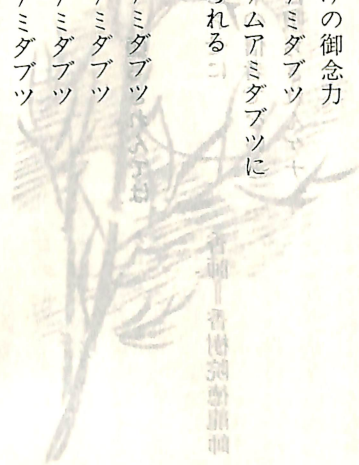 の御念力
ミダブツ
ムアミダブツに
れる
ミダブツ
ミダブツ
ミダブツ
ミダブツ